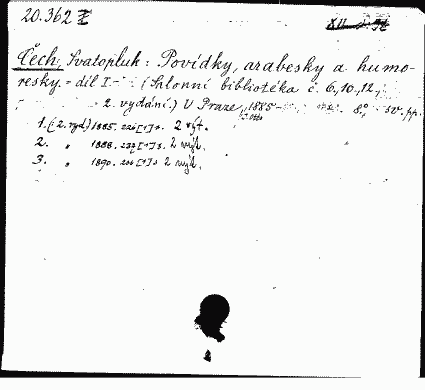 20.362 Z
Čech, Svatopluk: Povídky, arabesky a humo-
resky. díl I- (Salonní bibliotéka č. 6.,10.,12.,
2. vydání.) V Praze, 1885- 8°, sv. pp.
J. Otto
1. (2. vyd.) 1885. 226[+1]s. 2 výt.
2. " 1888. 237[+1]s. 2 výt.
3. " 1890. 2 výt.